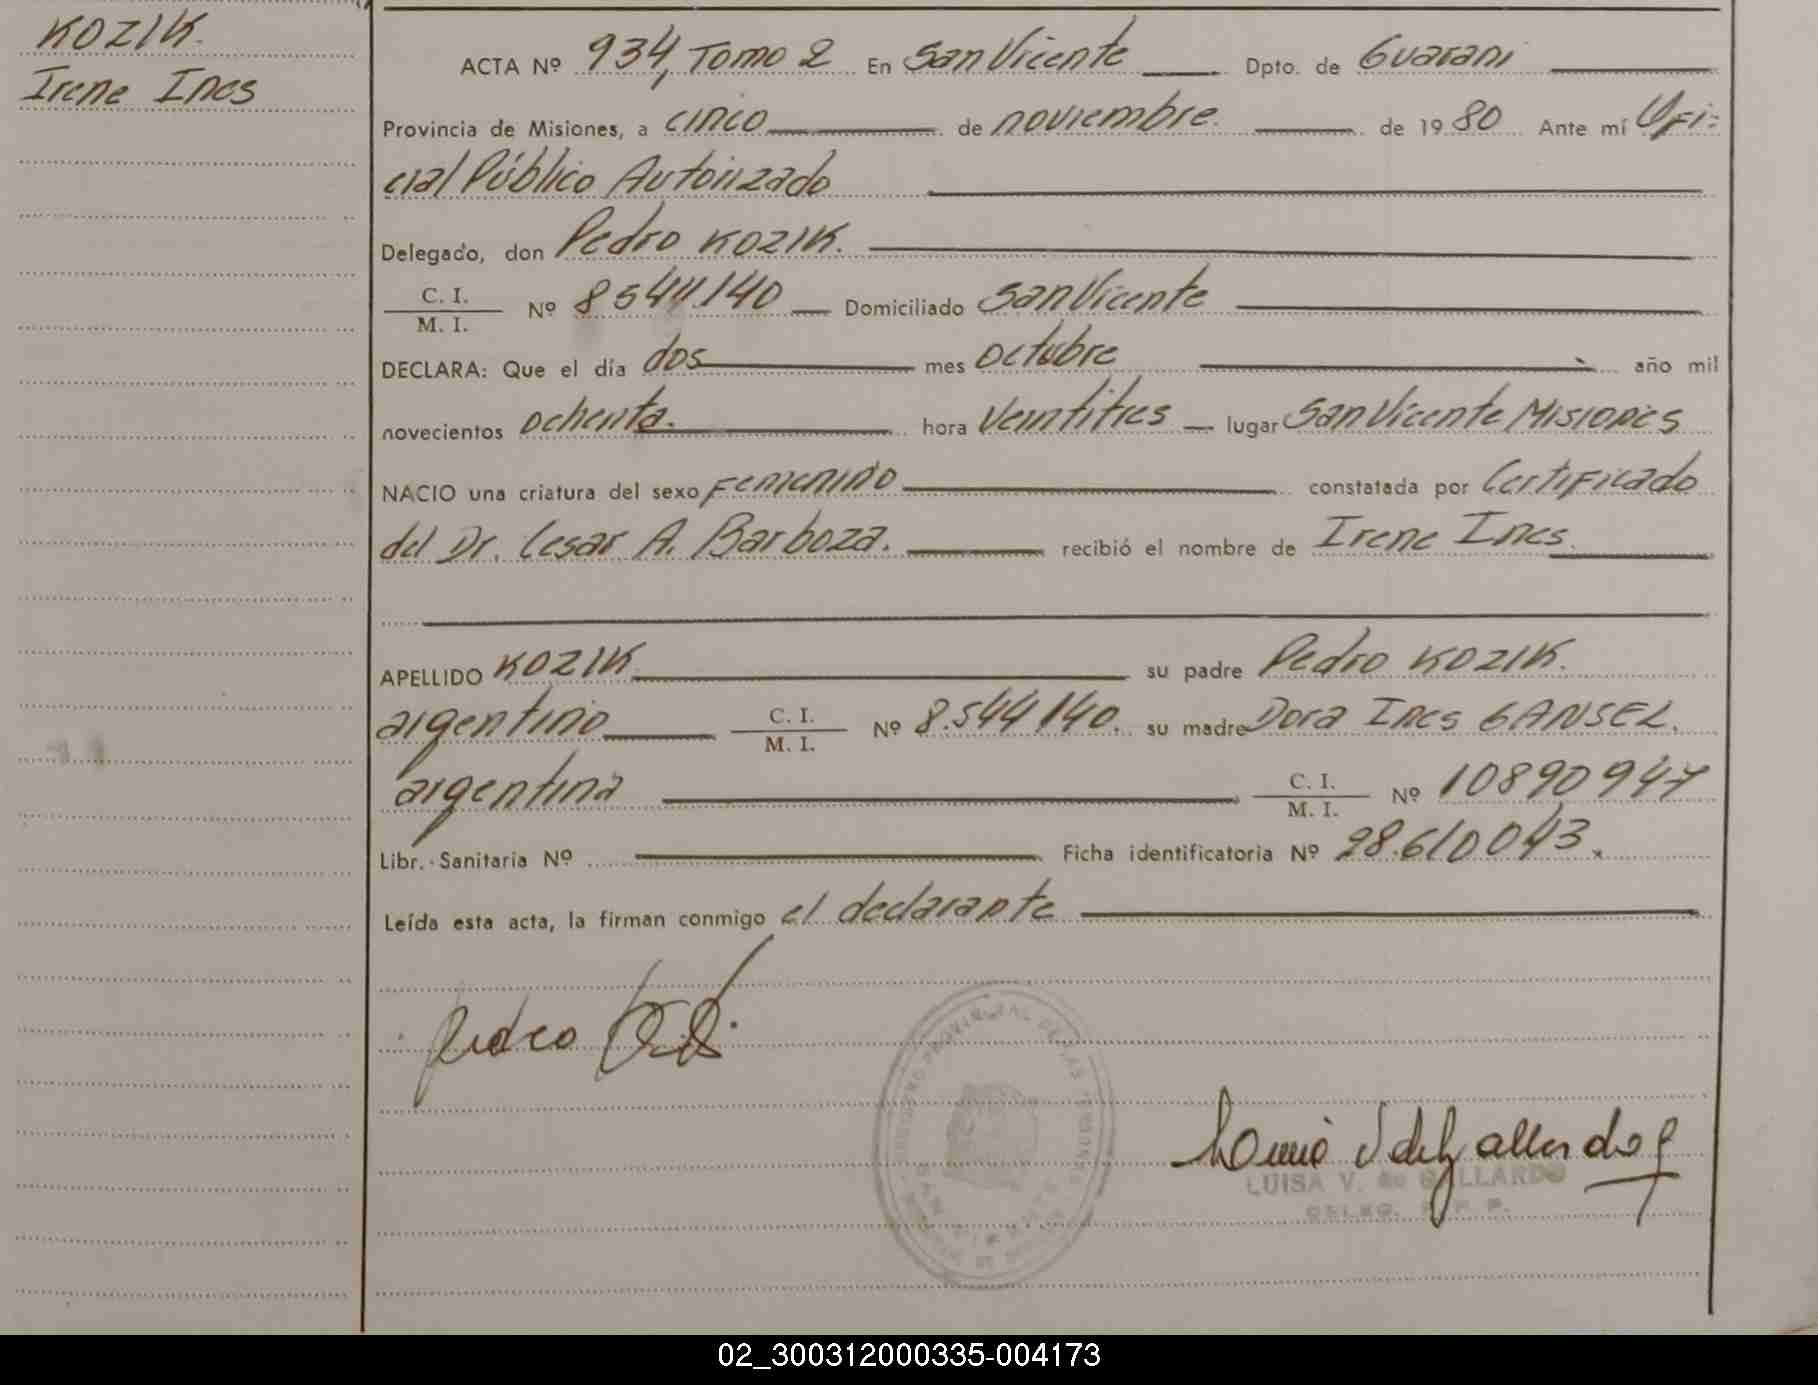 KOZIK.
Irene Ines
ACTA Nº 934, Tomo 2 En San Vicente Dpto. de Guarani
Provincia de Misiones, a cinco de noviembre. de 19 80 Ante mí Ofi-
cial Público Autorizado
Delegado, don Pedro KOZIK.
C. I.
M. I.
Nº 8544.140 Domiciliado San Vicente
DECLARA: Que el día dos mes octubre año mil
novecientos ochenta. hora veintitres lugar San Vicente Misiones
NACIO una criatura del sexo Femenino constatada por Certificado
del Dr. Cesar A. Barboza. recibió el nombre de Irene Ines.
APELLIDO KOZIK su padre Pedro KOZIK.
argentino C. I.
M. I.
Nº 8.544140. su madre Dora Ines GANSEL.
argentina C. I.
M. I.
Nº 10890947
Libr. Sanitaria Nº Ficha identificatoria Nº 28.610043.
Leída esta acta, la firman conmigo el declarante
Pedro
PROVINCIAL DE LAS PERSONAS
LUISA V. de GALLARDO
02_300312000335-004173